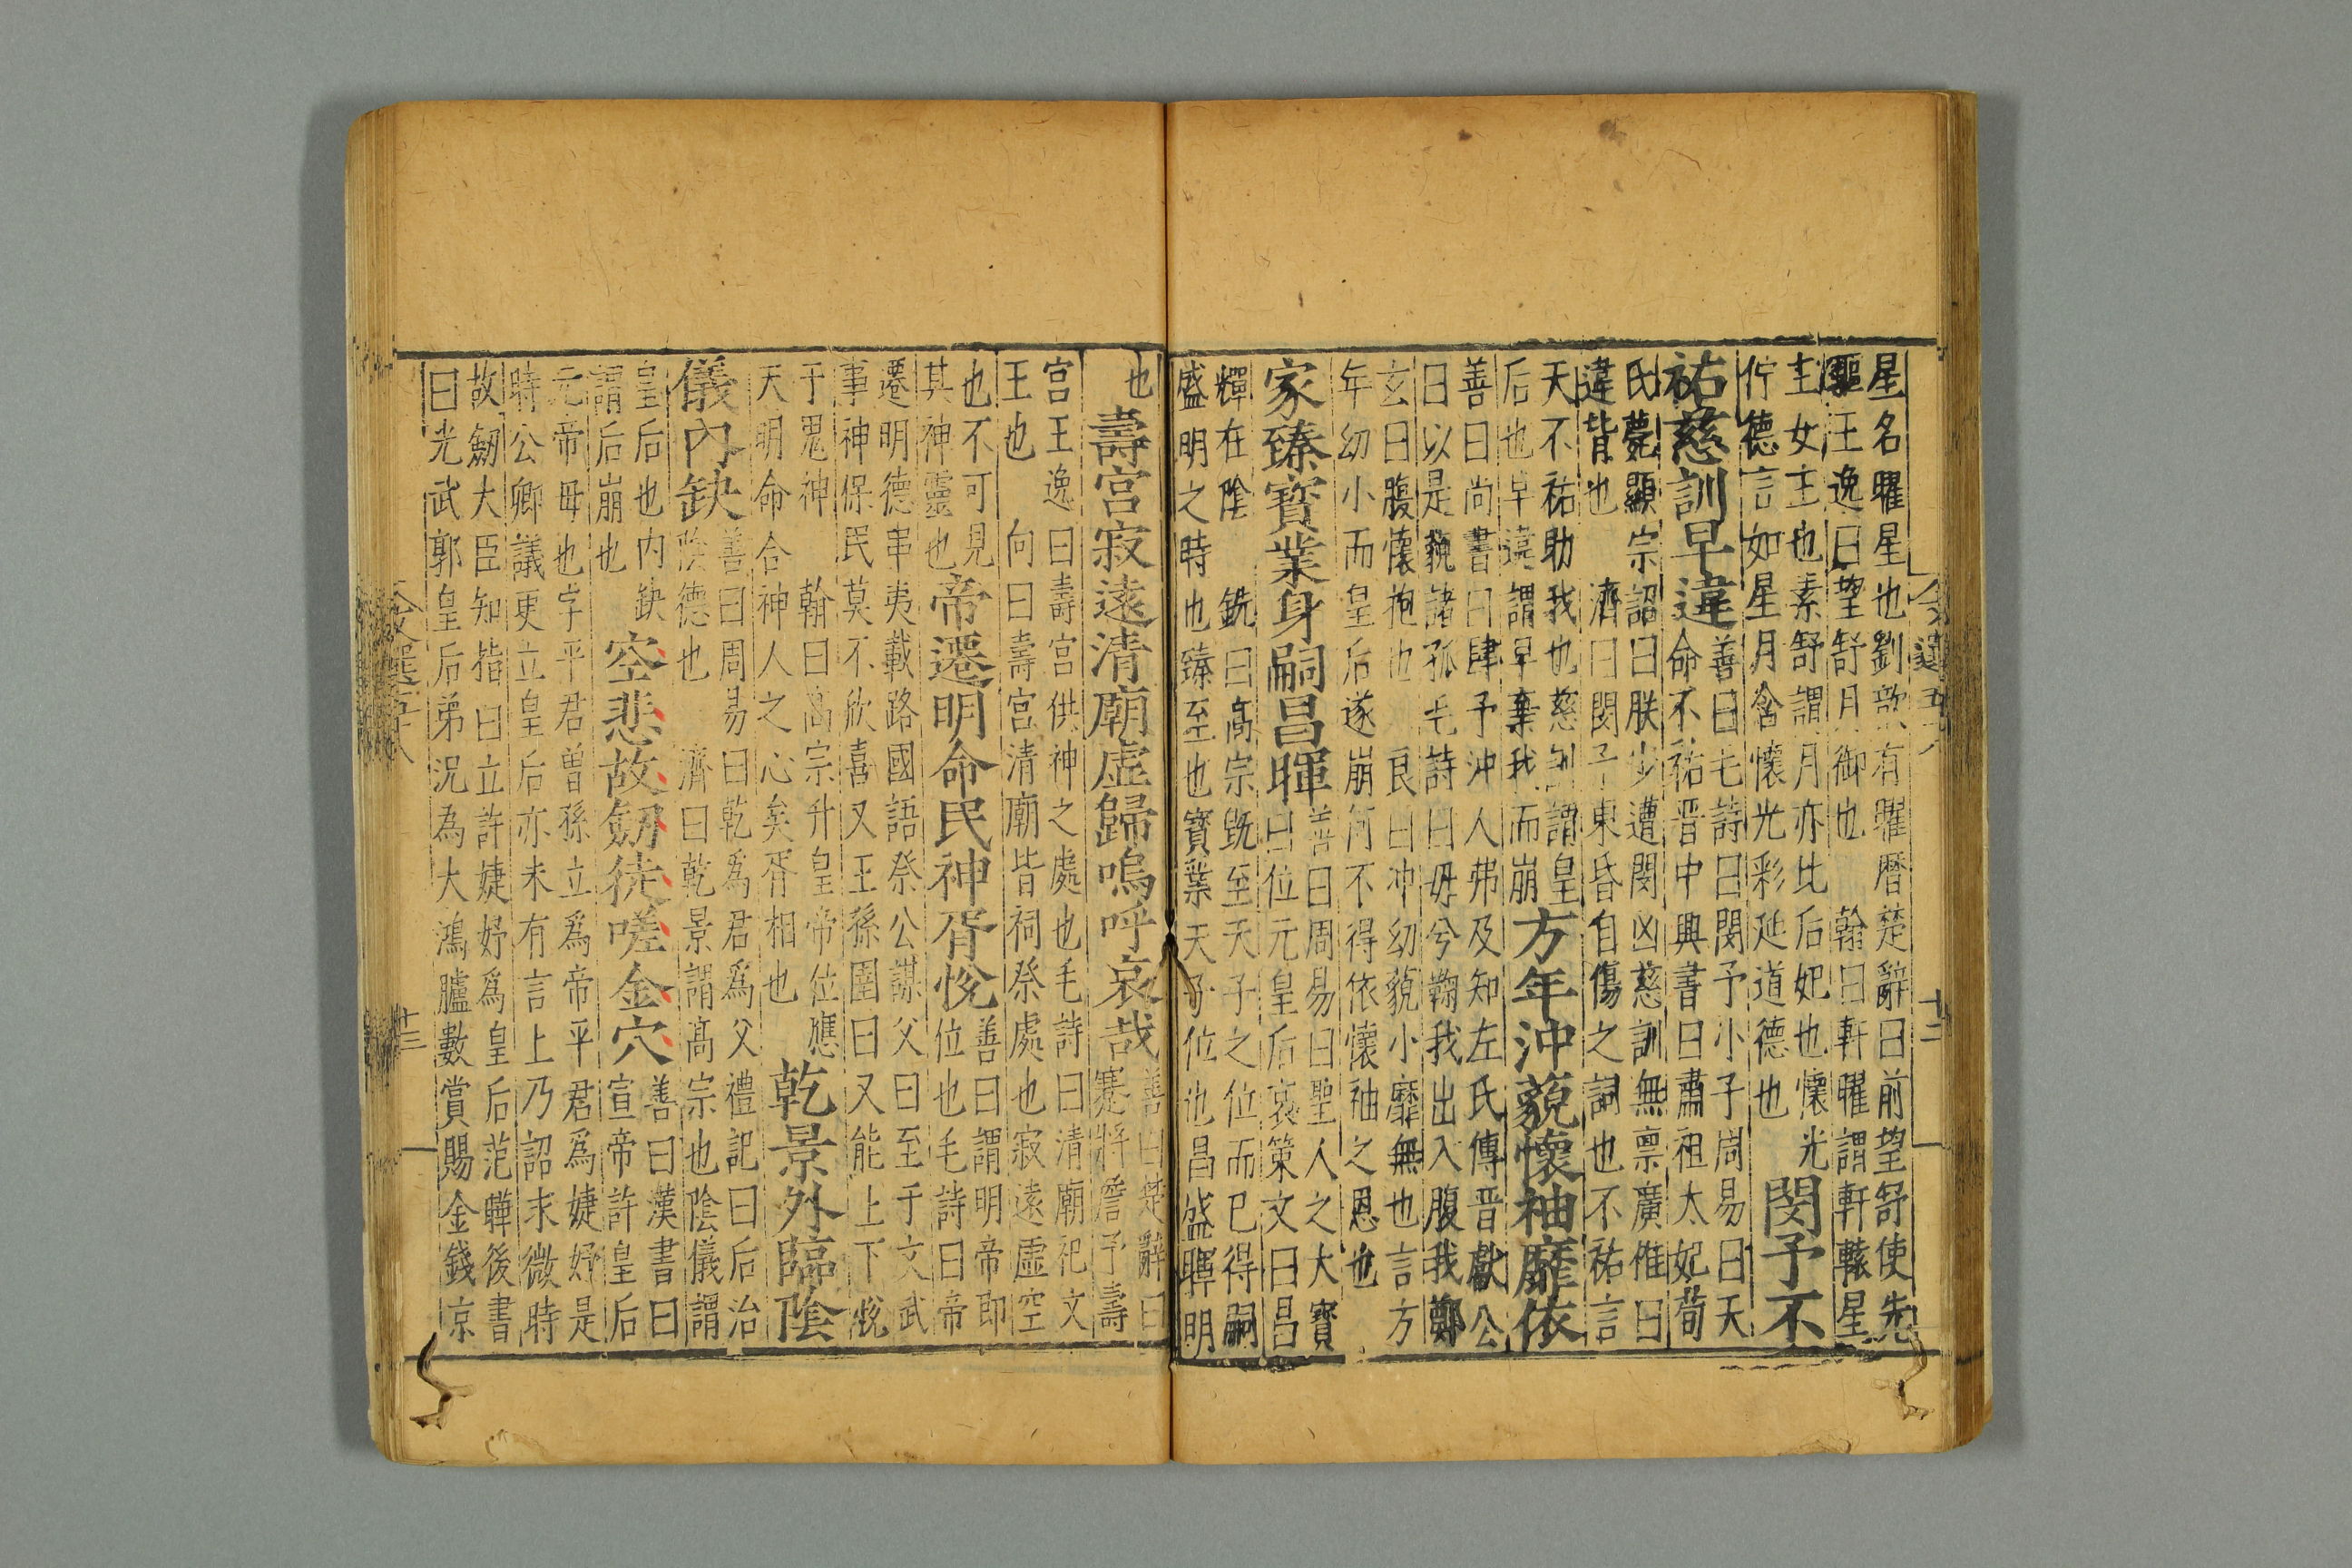 星名曜星也劉歆有曜曆楚辭曰前望舒使先
驅王逸曰望舒月御也 翰曰軒曜謂軒轅星
主女主也素舒謂月亦比后妃也懷光
佇德言如星月含懷光彩延道德也
閔予不
祐慈訓早違
善曰毛詩曰閔予小子周易曰天
命不祐晋中興書曰肅祖太妃荀
氏薨顯宗詔曰朕少遭閔凶慈訓無禀廣惟曰
違背也 濟曰閔予東昏自傷之詞也不祐言
天不祐助我也慈訓謂皇
后也早違謂早棄我而崩
方年沖藐懷袖靡依
善曰尚書曰肆予沖人弗及知左氏傳晋獻公
曰以是藐諸孤毛詩曰毋兮鞠我出入腹我鄭
玄曰腹懷抱也 良曰沖幼藐小靡無也言方
年幼小而皇后遂崩何不得依懷袖之恩也
家臻寳業身嗣昌暉
善曰周易曰聖人之大寳
曰位元皇后哀策文曰昌
輝在陰 銑曰髙宗旣至天子之位而已得嗣
盛明之時也臻至也寳業天子位也昌盛暉明
也
壽宮寂遠清廟虛歸嗚呼哀哉
善曰楚辭曰
蹇將詹予壽
宮王逸曰壽宮供神之處也毛詩曰清廟祀文
王也 向曰壽宮清廟皆祠祭處也寂遠虛空
也不可見
其神靈也
帝遷明命民神胥悅
善曰謂明帝即
位也毛詩曰帝
遷明德串夷載路國語祭公謀父曰至于文武
事神保民莫不欣喜又王孫圉曰又能上下悅
于鬼神 翰曰髙宗升皇帝位應
天明命合神人之心矣胥相也
乾景外臨陰
儀內缺
善曰周易曰乾爲君爲父禮記曰后治
陰德也 濟曰乾景謂髙宗也陰儀謂
皇后也内缺
謂后崩也
空悲故劒徒嗟金穴
善曰漢書曰
宣帝許皇后
元帝毋也字平君曽孫立爲帝平君爲婕妤是
時公卿議更立皇后亦未有言上乃詔求微時
故劒大臣知指曰立許婕妤爲皇后范曄後書
曰光武郭皇后弟況為大鴻臚數賞賜金錢京
十二
十三